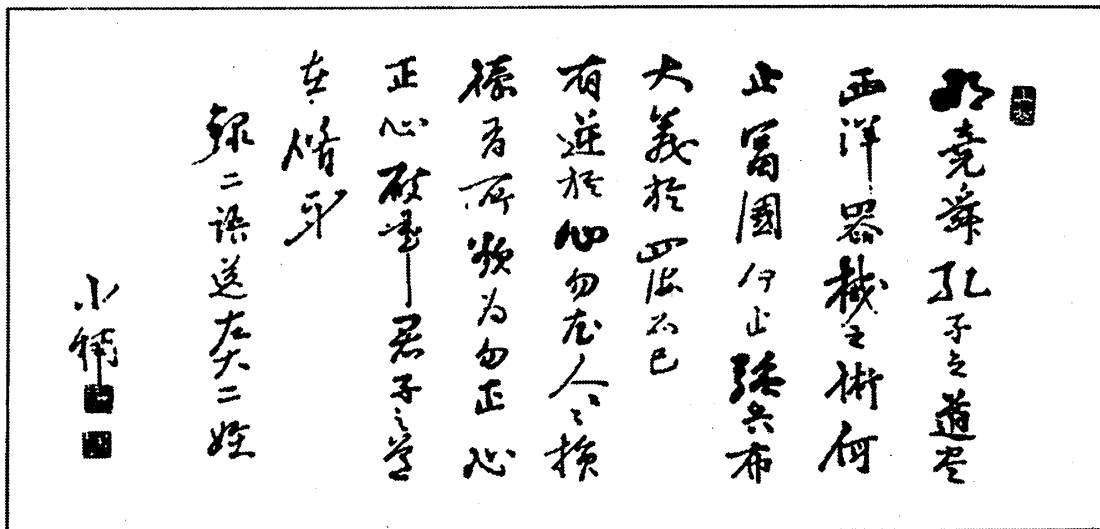 明堯舜孔子之道尽
西洋器械之術何
止富國何止強兵布
大義於四海而已
有逆於心勿尤人々損
徳有所欲為勿正心
正心破事君子之道
在脩身
録二語送左大二姪
小楠